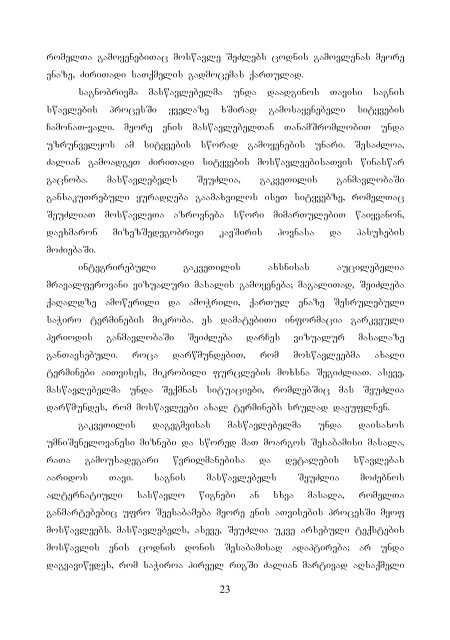 რომელთა გამოყენებითაც მოსწავლე შეძლებს ცოდნის გამოვლენას მეორე
ენაზე, ძირითადი სათქმელის გადმოცემას ქართულად.
საგნობრივმა მასწავლებელმა უნდა დაადგინოს თავისი საგნის
სწავლების პროცესში ყველაზე ხშირად გამოსაყენებელი სიტყვების
ჩამონათ-ვალი. მეორე ენის მასწავლებელთან თანამშრომლობით უნდა
უზრუნველყოს ამ სიტყვების სწორად გამოყენების უნარი. შესაძლოა,
ძალიან გამოადგეთ ძირითადი სიტყვების მოსწავლეებისათვის წინასწარ
გაცნობა. მასწავლებელს შეუძლია, გაკვეთილის განმავლობაში
განსაკუთრებული ყურადღება გაამახვილოს ისეთ სიტყვებზე, რომელთაც
შეუძლიათ მოსწავლეთა აზროვნება სწორი მიმართულებით წაიყვანონ,
დაეხმარონ მიზეზშედეგობრივი კავშირის პოვნასა და პასუხების
მოძიებაში.
ინტეგრირებული გაკვეთილის ახსნისას აუცილებელია
მრავალფეროვანი ვიზუალური მასალის გამოყენება; მაგალითად, შეიძლება
ქაღალდზე ამოწერილი და ამოჭრილი, ქართულ ენაზე შესრულებული
საჭირო ტერმინების მიკრობა. ეს დამატებითი ინფორმაცია გარკვეული
პერიოდის განმავლობაში შეიძლება დარჩეს ვიზუალურ მასალაზე
განთავსებული. როცა დარწმუნდებით, რომ მოსწავლეებმა ახალი
ტერმინები აითვისეს, მიკრობილი ფურცლების მოხსნა შეგიძლიათ. ასევე,
მასწავლებელმა უნდა შექმნას სიტუაციები, რომლებშიც მას შეუძლია
დარწმუნდეს, რომ მოსწავლეები ახალ ტერმინებს სრულად დაეუფლნენ.
გაკვეთილის დაგეგმვისას მასწავლებელმა უნდა დაისახოს
უმნიშვნელოვანესი მიზნები და სწორედ მათ მოარგოს შესაბამისი მასალა,
რათა გამოუსადეგარი წვრილმანებისა და დეტალების სწავლებას
აარიდოს თავი. საგნის მასწავლებელს შეუძლია მოძებნოს
ალტერნატიული სასწავლო წიგნები ან სხვა მასალა, რომელთა
განმარტებებიც უფრო შეესაბამება მეორე ენის ათვისების პროცესში მყოფ
მოსწავლეებს. მასწავლებელს, ასევე, შეუძლია უკვე არსებული ტექსტების
მოსწავლის ენის ცოდნის დონის შესაბამისად ადაპტირება; არ უნდა
დაგვავიწყდეს, რომ საჭიროა პირველ რიგში ძალიან მარტივად აღსაქმელი
23